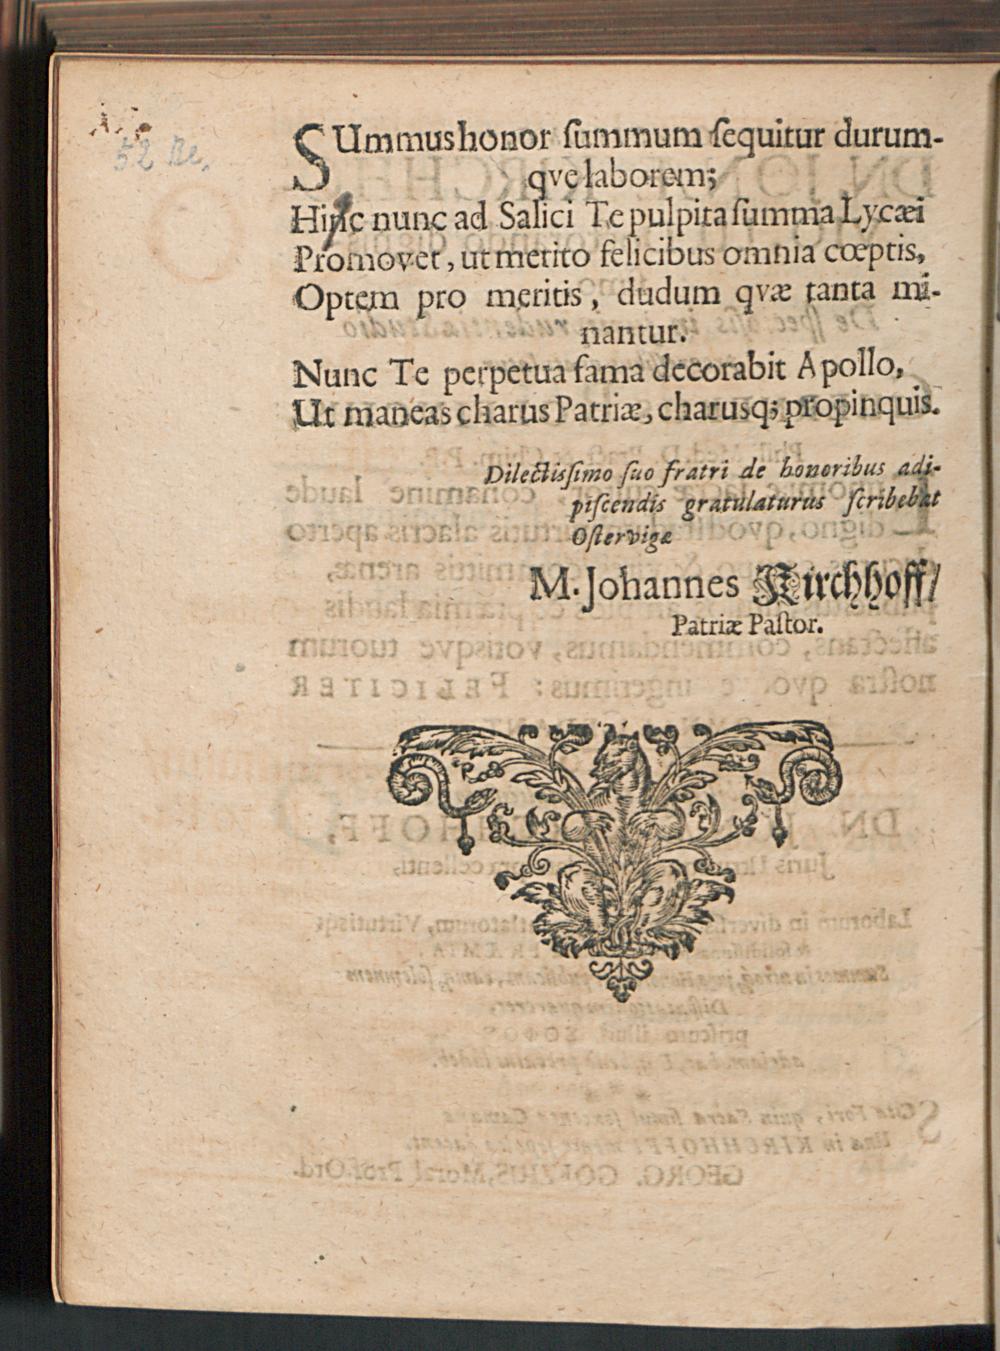 52 Re.
SUmmus honor ſummum ſequitur durum-
qve laborem;
Hinc nunc ad Salici Te pulpita ſumma Lycæi
Promovet, ut merito felicibus omnia cœptis,
Optem pro meritis, dudum qvæ tanta mi-
nantur.
Nunc Te perpetua fama decorabit Apollo,
Ut maneas charus Patriæ, charusq; propinquis.
Dilectisſimo ſuo fratri de honoribus adi-
piſcendis gratulaturus ſcribebat
Oſtervigæ
M. Johannes Kirchhoff/
Patriæ Paſtor.